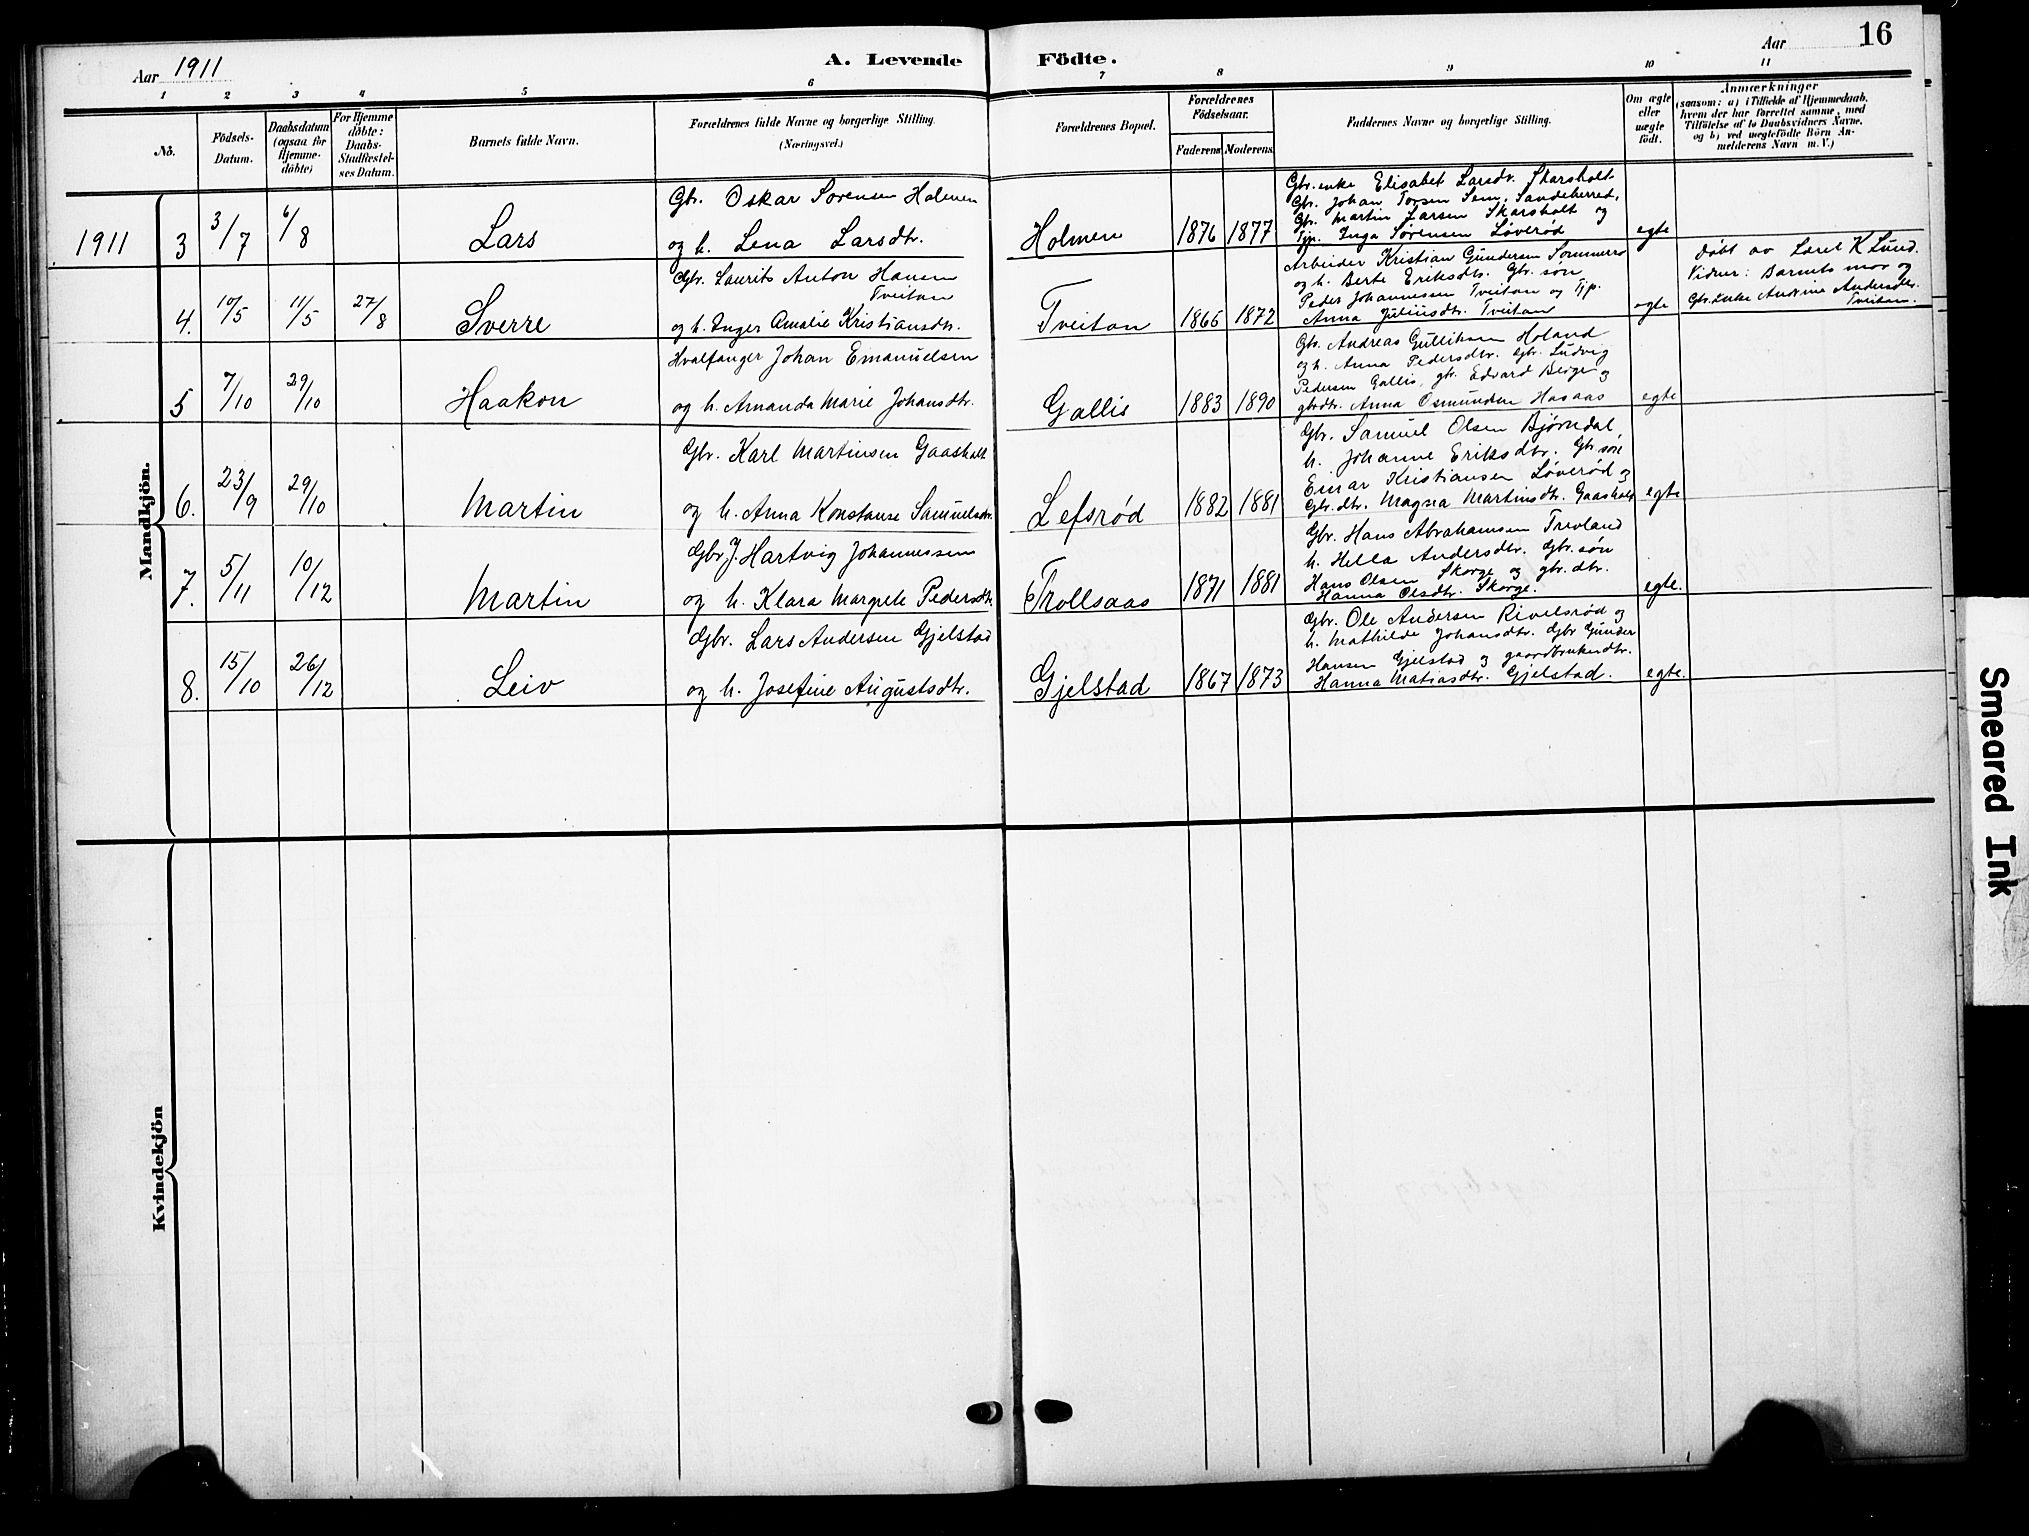 Aar 1911
A. Levende Födte.
Aar
16
1 2 3 4 5 6 7 8 9 10 11
No.
Födsels-
Datum.
Daabsdatum
(ogsaa for
Hjemme-
döbte)
For Hjemme
döbte:
Daabs-
Stadfæstel-
ses Datum.
Barnets fulde Navn.
Forældrenes fulde Navne og borgerlige Stilling.
(Næringsvei.)
Forældrenes Bopæl.
Forældrenes
Födselsaar.
Faderens Moderens
Faddernes Navne og borgerlige Stilling.
Om ægte
eller
uægte
födt.
Anmærkninger
(saasom: a) i Tilfælde af Hjemmedaab,
hvem der har forrettet samme, med
Tilföielse af to Daabsvidners Navne,
og b) ved uægtefödte Börn An-
melderens Navn m. V.)
Mandkjön.
1911 3 3/7 6/8 Lars
Gbr. Oskar Sørensen Holmen
og h. Lena Larsdtr.
Holmen 1876 1877
Gbr. enke Elisabet Larsdr. Skarsholt
Gbr. Johan Torsen Sem, Sandeherred,
Gbr. Martin Larsen Skarsholt og
Tjp. Inga Sørensen Løverød
egte
4. 10/5 11/5 27/8 Sverre
Gbr. Laurits Anton Hansen
Tveitan
og h. Inger Amalie Kristiansdtr.
Tveitan 1865 1872
Arbeider Kristian Gundersen Sommerro
og h. Berte Eriksdtr. Gbr. søn
Peder Johannessen Tveitan og Tjp.
Anna Juliusdtr. Tveitan
egte
Døbt av Læret K Lund.
Vidner: Barnets mor og
Gbr. Enke Andrine Andersdtr.
Tveitan.
5 7/10 29/10 Haakon
Hvalfanger Johan Emanuelsen
og h. Amanda Marie Johansdtr.
Gallis 1883 1890
Gbr. Andreas Gulliksen Holand
og h. Anna Pedersdtr. Gbr. Ludvig
Pedersen Gallis, gbr. Edvard Berge og
gbrdtr. Anna Osmundsen Hasaas
egte
6. 23/9 29/10 Martin
Gbr. Karl Martinsen Gaasholt
og h. Anna Konstanse Samuelsdtr.
Lefsrød 1882 1881
Gbr. Samuel Olsen Bjørndal
h. Johanne Eriksdtr. Gbr. søn
Einar Kristiansen Løverød og
Gbr. dtr. Magna Martinsdtr. Gaasholt
egte
7. 5/11 10/12 Martin
Gbr. J. Hartvig Johannessen
og h. Klara Margrete Pedersdtr.
Trollsaas 1871 1881
Gbr. Hans Abrahamsen Trevland
h. Hella Andersdtr. Gbr. søn
Hans Olsen Skorge og gbr. dtr.
Hanna Olsdtr. Skorge.
egte.
8. 15/10 26/12 Leiv
Gbr. Lars Andersen Gjelstad
og h. Josefine Augustsdtr.
Gjelstad 1867 1873
Gbr. Ole Andersen Rivelsrød og
h. Mathilde Johansdtr. Gbr Gunder
Hansen Gjelstad og gaardbrukerdtr.
Hanna Matiasdtr. Gjelstad.
egte.
Kvindekjön
Smeared Ink